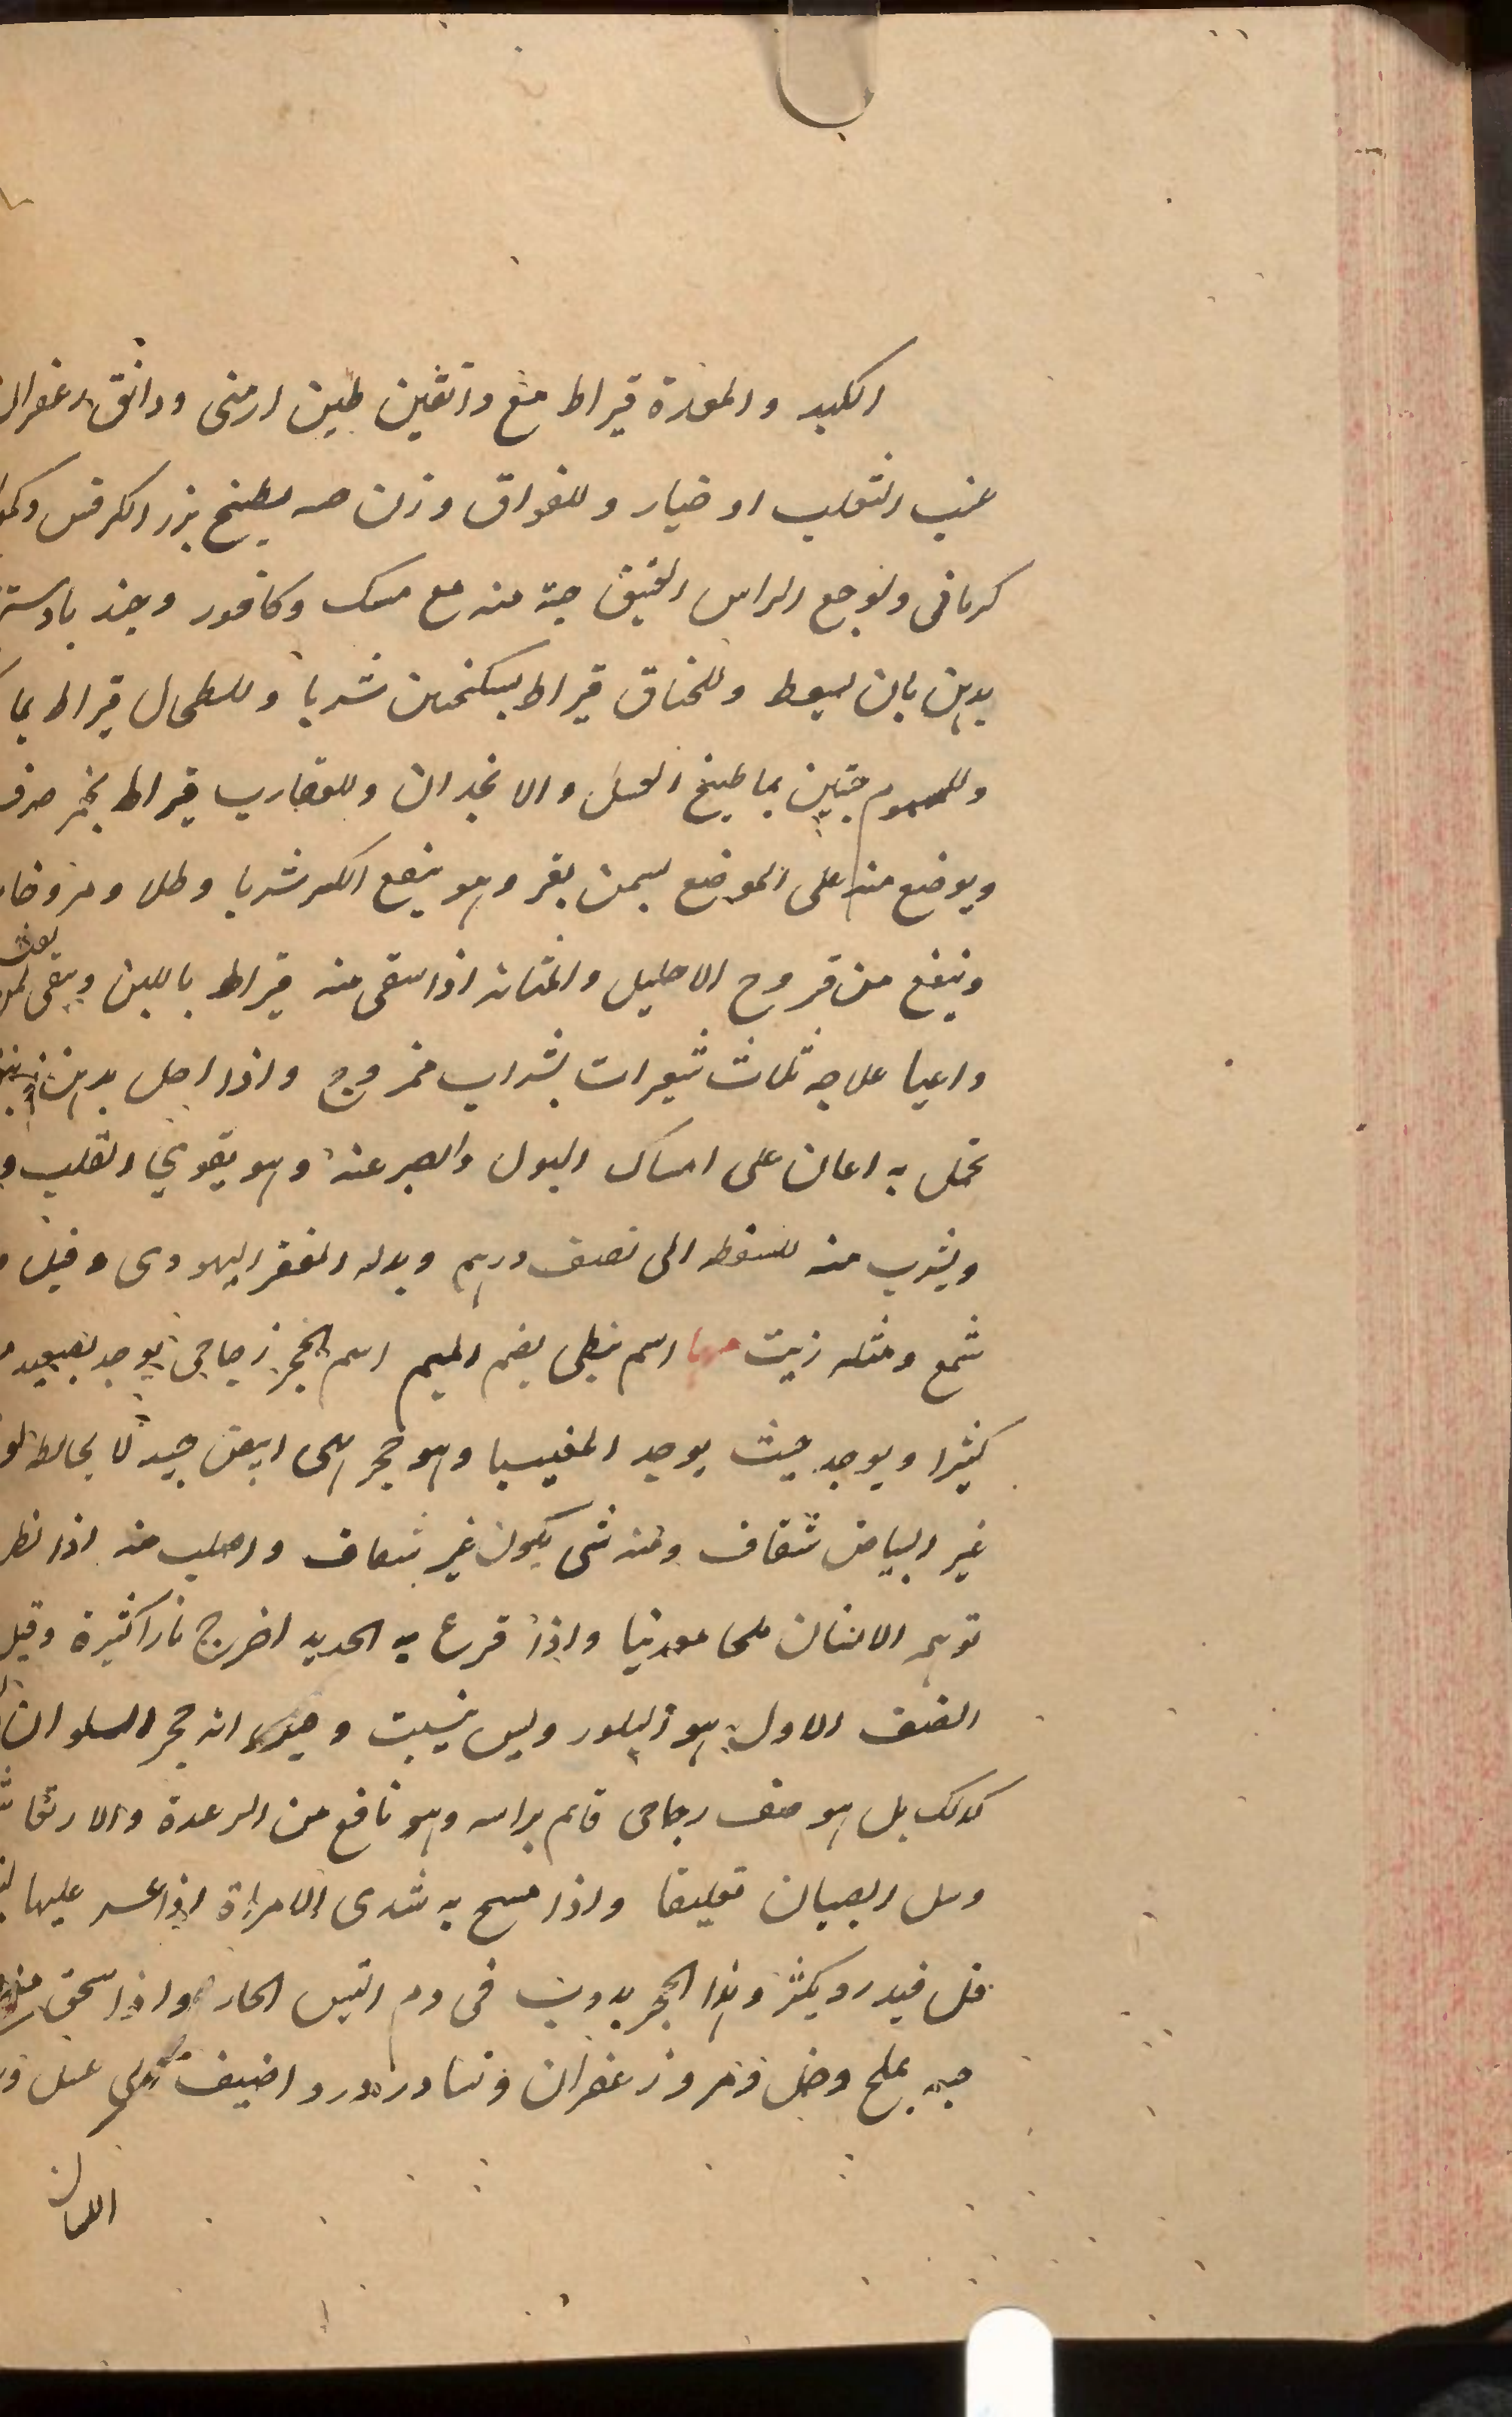 الكبد والمعدة قيراط مع دانقين طين ارمنى ودانق زعفران
عنب الثعلب او خيار وللفواق وزن حبه بطبخ بزر الكرفس
كرمانى ولوجع الراس العتيق حبة منه مع مسك وكافور وجند بادستر
بدهن بان يسعط وللخناق قيراط بسكنجبين شربا وللطحال قيراط بما
وللسموم حبتين بما طبيخ العسل والانجدان وللعقارب قيراط بخمر صرف
ويوضع منه على الموضع بسمن بقر وهو ينفع الكسر شربا وطلا ومروخا
وينفع من قروح الاحليل والمثانه اذا سقى منه قيراط باللبن ويسقى
واعيا علاجه ثلاث شعيرات بشراب ممزوج واذا احل بدهن
تحمل به اعان على امساك البول والصبر عنه وهو يقوي القلب
ويشرب منه للسقطه الى نصف درهم وبدله القفر اليهودى وقيل
شمع ومثله زيت مها اسم نبطى بضم الميم اسم لحجر زجاجى يوجد بصعيد
كثيرا ويوجد حيث يوجد المغنيسيا وهو حجر ابيض جيد لا يخالطه
غير البياض شفاف ومنه شى يكون غير شفاف واصلب منه اذا نظر
توهمه الانسان ملحا معدنيا واذا قرع به الحديد اخرج نارا كثيرة وقيل
الصنف الاول هو البلور وليس بثبت وقيل انه حجر السلوان
كذلك بل هو صنف زجاجى قايم براسه وهو نافع من الرعدة والارتعاش
وسل الصبيان تعليقا واذا مسح به ثدى الامراة اذا عسر عليها
فيدر ويكثر وهذا الحجر يدوب فى دم التيس الحار واذا سحق منه
حبه بملح وخل ومر وزعفران ونشادر واضيف الى عسل